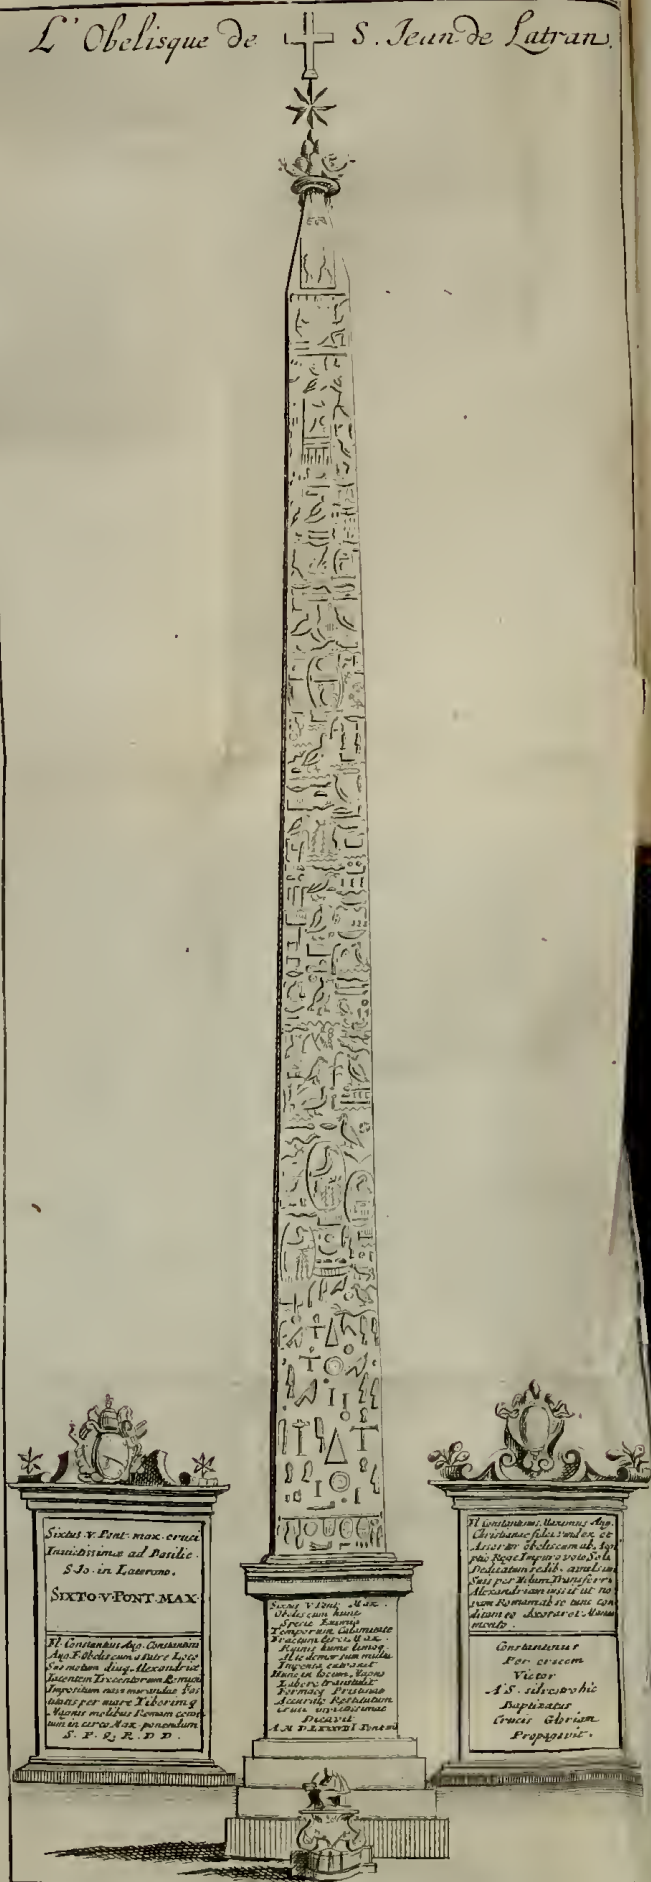 L'Obelisque de S. Jean de Latran.
Sixtus. v. Pont. max. cruci
Inuictissimæ ad Basilic.
S. Jo. in Laterano.
SIXTO·V·PONT·MAX·
Fl. Constantius Aug. Constantini
Aug. F. obeliscum a Patre Loco
Suo motum diuq. Alexandriæ
Iacentem Trecentorum Remigū
Impositum naui mirandæ Vas
titatis per mare Tiberimq
Magnis molibus Romam
in circo Max. ponendum
S. P. Q. R. D. D.
Sixtus V Pont. Max.
Obeliscum hunc
Specie Eximia
Temporum Calamitate
Fractum Circi Max.
Ruinis humo limoq.
Alte demersum multa
Impensa extraxit
Hunc in locum Magno
Labore transtulit
Formæq Pristinæ
Accuratè Restitutum
Cruci
Dicavit
Fl. Constantinus. Maximus Aug.
Christianæ fidei Vindex et
Assertor obeliscum ab
Rege Impuro voto Soli
Dedicatum
Suis per Nilum Transferri
Alexandriam iussit ut no
uam Romam ab se tunc con
ditam eo
mento.
Constantinus
Per crucem
Victor
A'S. silvestro hic
Baptizatus
Crucis Gloriam
Propagavit.